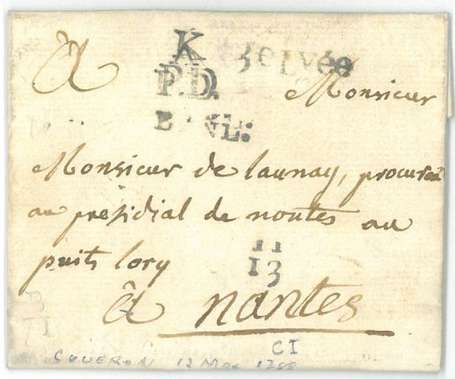 K 3e Lvée
P.D.
BANL:
à Monsieur
Monsieur de launay, procureur
au présidial de nantes au
puits lory
11
13
à nantes
CI
COUERON 12 Mai